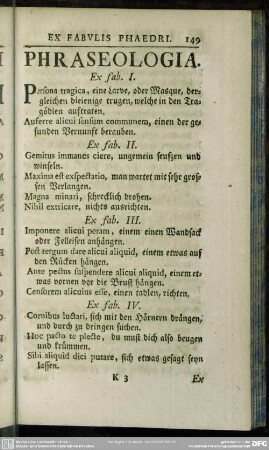 EX FABVLIS PHAEDRI. 149
PHRASEOLOGIA.
Ex fab. I.
Persona tragica, eine Larve, oder Masque, der-
gleichen diejenige trugen, welche in den Tra-
gödien auftraten.
Auferre alicui sensum communem, einen der ge-
sunden Vernunft berauben.
Ex fab. II.
Gemitus immanes ciere, ungemein seufzen und
winseln.
Maxima est exspectatio, man wartet mit sehr gros-
sen Verlangen.
Magna minari, schrecklich drohen.
Nihil extricare, nichts ausrichten.
Ex fab. III.
Imponere alicui peram, einem einen Wandsack
oder Felleisen anhängen.
Post tergum dare alicui aliquid, einem etwas auf
den Rücken hängen.
Ante pectus suspendere alicui aliquid, einem et-
was vornen vor die Brust hängen.
Censorem alicuius esse, einen tadlen, richten.
Ex fab. IV.
Cornibus luctari, sich mit den Hörnern drängen,
und durch zu dringen suchen.
Hoc pacto te plecte, du must dich also beugen
und krümmen.
Sibi aliquid dici putare, sich etwas gesagt seyn
lassen.
K 3 Ex